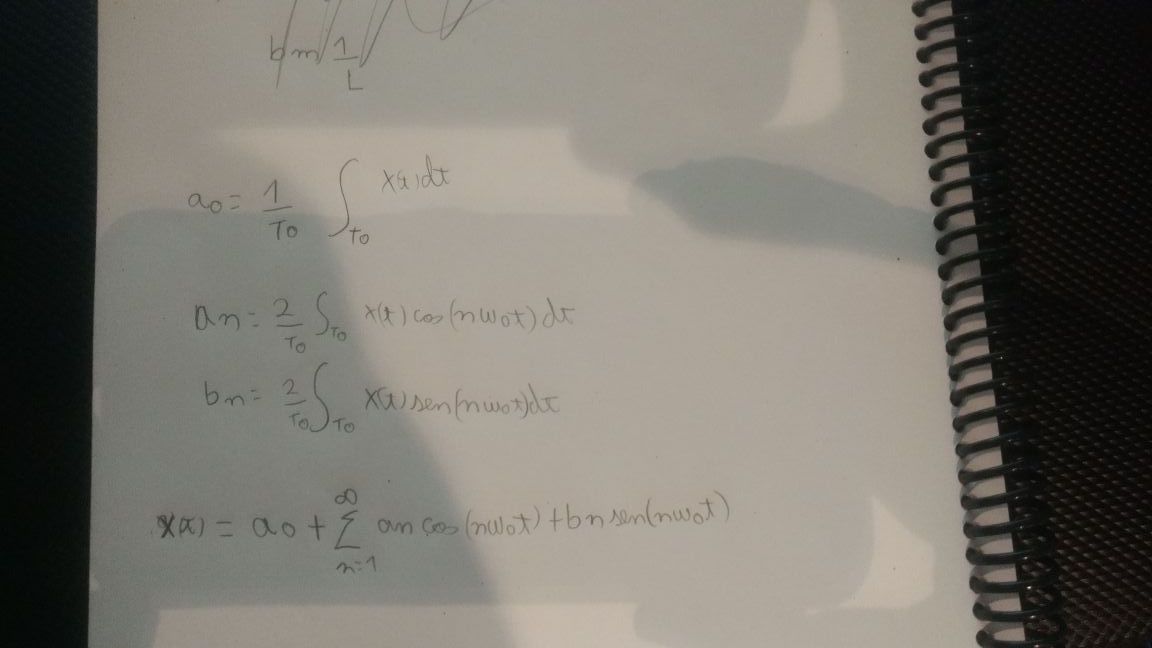 bm 1/L
a0 = 1/T0 ∫T0 x(t)dt
an = 2/T0 ∫T0 x(t) cos(nw0t) dt
bn = 2/T0 ∫T0 x(t) sen(nw0t)dt
x(t) = a0 + ∞∑n=1 an cos(nw0t) + bn sen(nw0t)